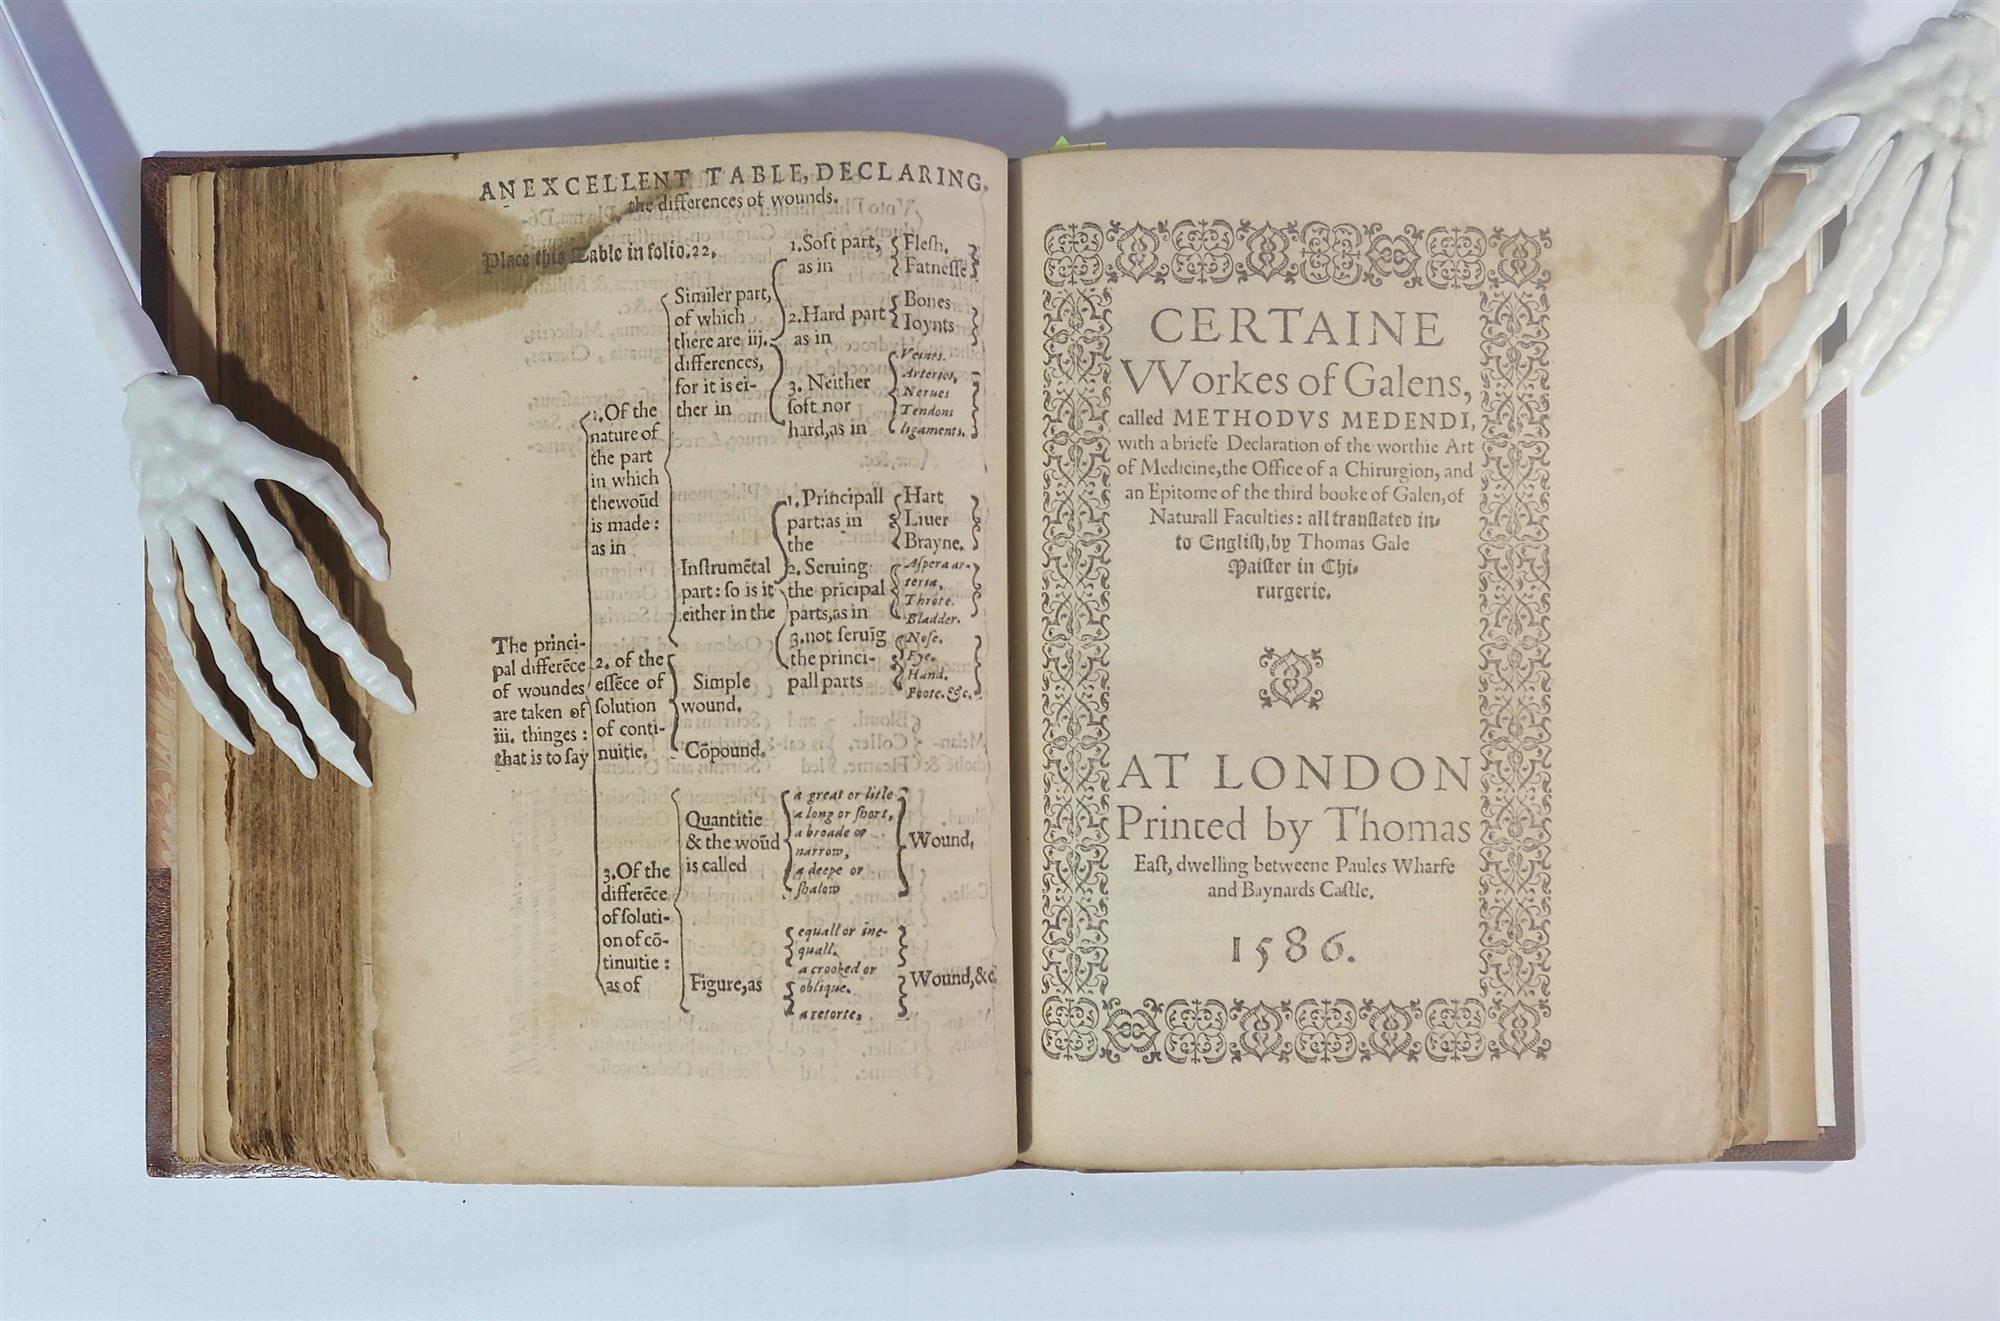 AN EXCELLENT TABLE, DECLARING,
the differences of wounds.
Place this Table in folio.22.
The princi-
pal differēce
of woundes
are taken of
iii. thinges:
that is to say
1.Of the
nature of
the part
in which
thewoūd
is made:
as in
Similer part,
of which
there are iij.
differences,
for it is ei-
ther in
1.Soft part,
as in
Flesh.
Fatnesse
2.Hard part
as in
Bones
Ioynts
3. Neither
soft nor
hard,as in
Veines.
Arteries,
Nerues
Tendons
ligaments.
Instrumētal
part: so is it
either in the
1. Principall
part:as in
the
Hart
Liuer
Brayne.
2. Seruing
the prīcipal
parts,as in
Aspera ar-
teria,
Throte.
Bladder.
3.not seruīg
the princi-
pall parts
Nose.
Eye.
Hand.
Foote.&c.
2. of the
essēce of
solution
of conti-
nuitie.
Simple
wound.
Cōpound.
3.Of the
differēce
of soluti-
on of cō-
tinuitie:
as of
Quantitie
& the woūd
is called
a great or litle
a long or short,
a broade or
narrow,
a deepe or
shalow
Wound,
Figure,as
equall or ine-
quall.
a crooked or
oblique.
a retorte,
Wound,&c.
CERTAINE
VVorkes of Galens,
called METHODVS MEDENDI,
with a briefe Declaration of the worthie Art
of Medicine,the Office of a Chirurgion, and
an Epitome of the third booke of Galen,of
Naturall Faculties: all translated in-
to English,by Thomas Gale
Maister in Chi-
rurgerie.
AT LONDON
Printed by Thomas
East, dwelling betweene Paules Wharfe
and Baynards Castle.
1586.